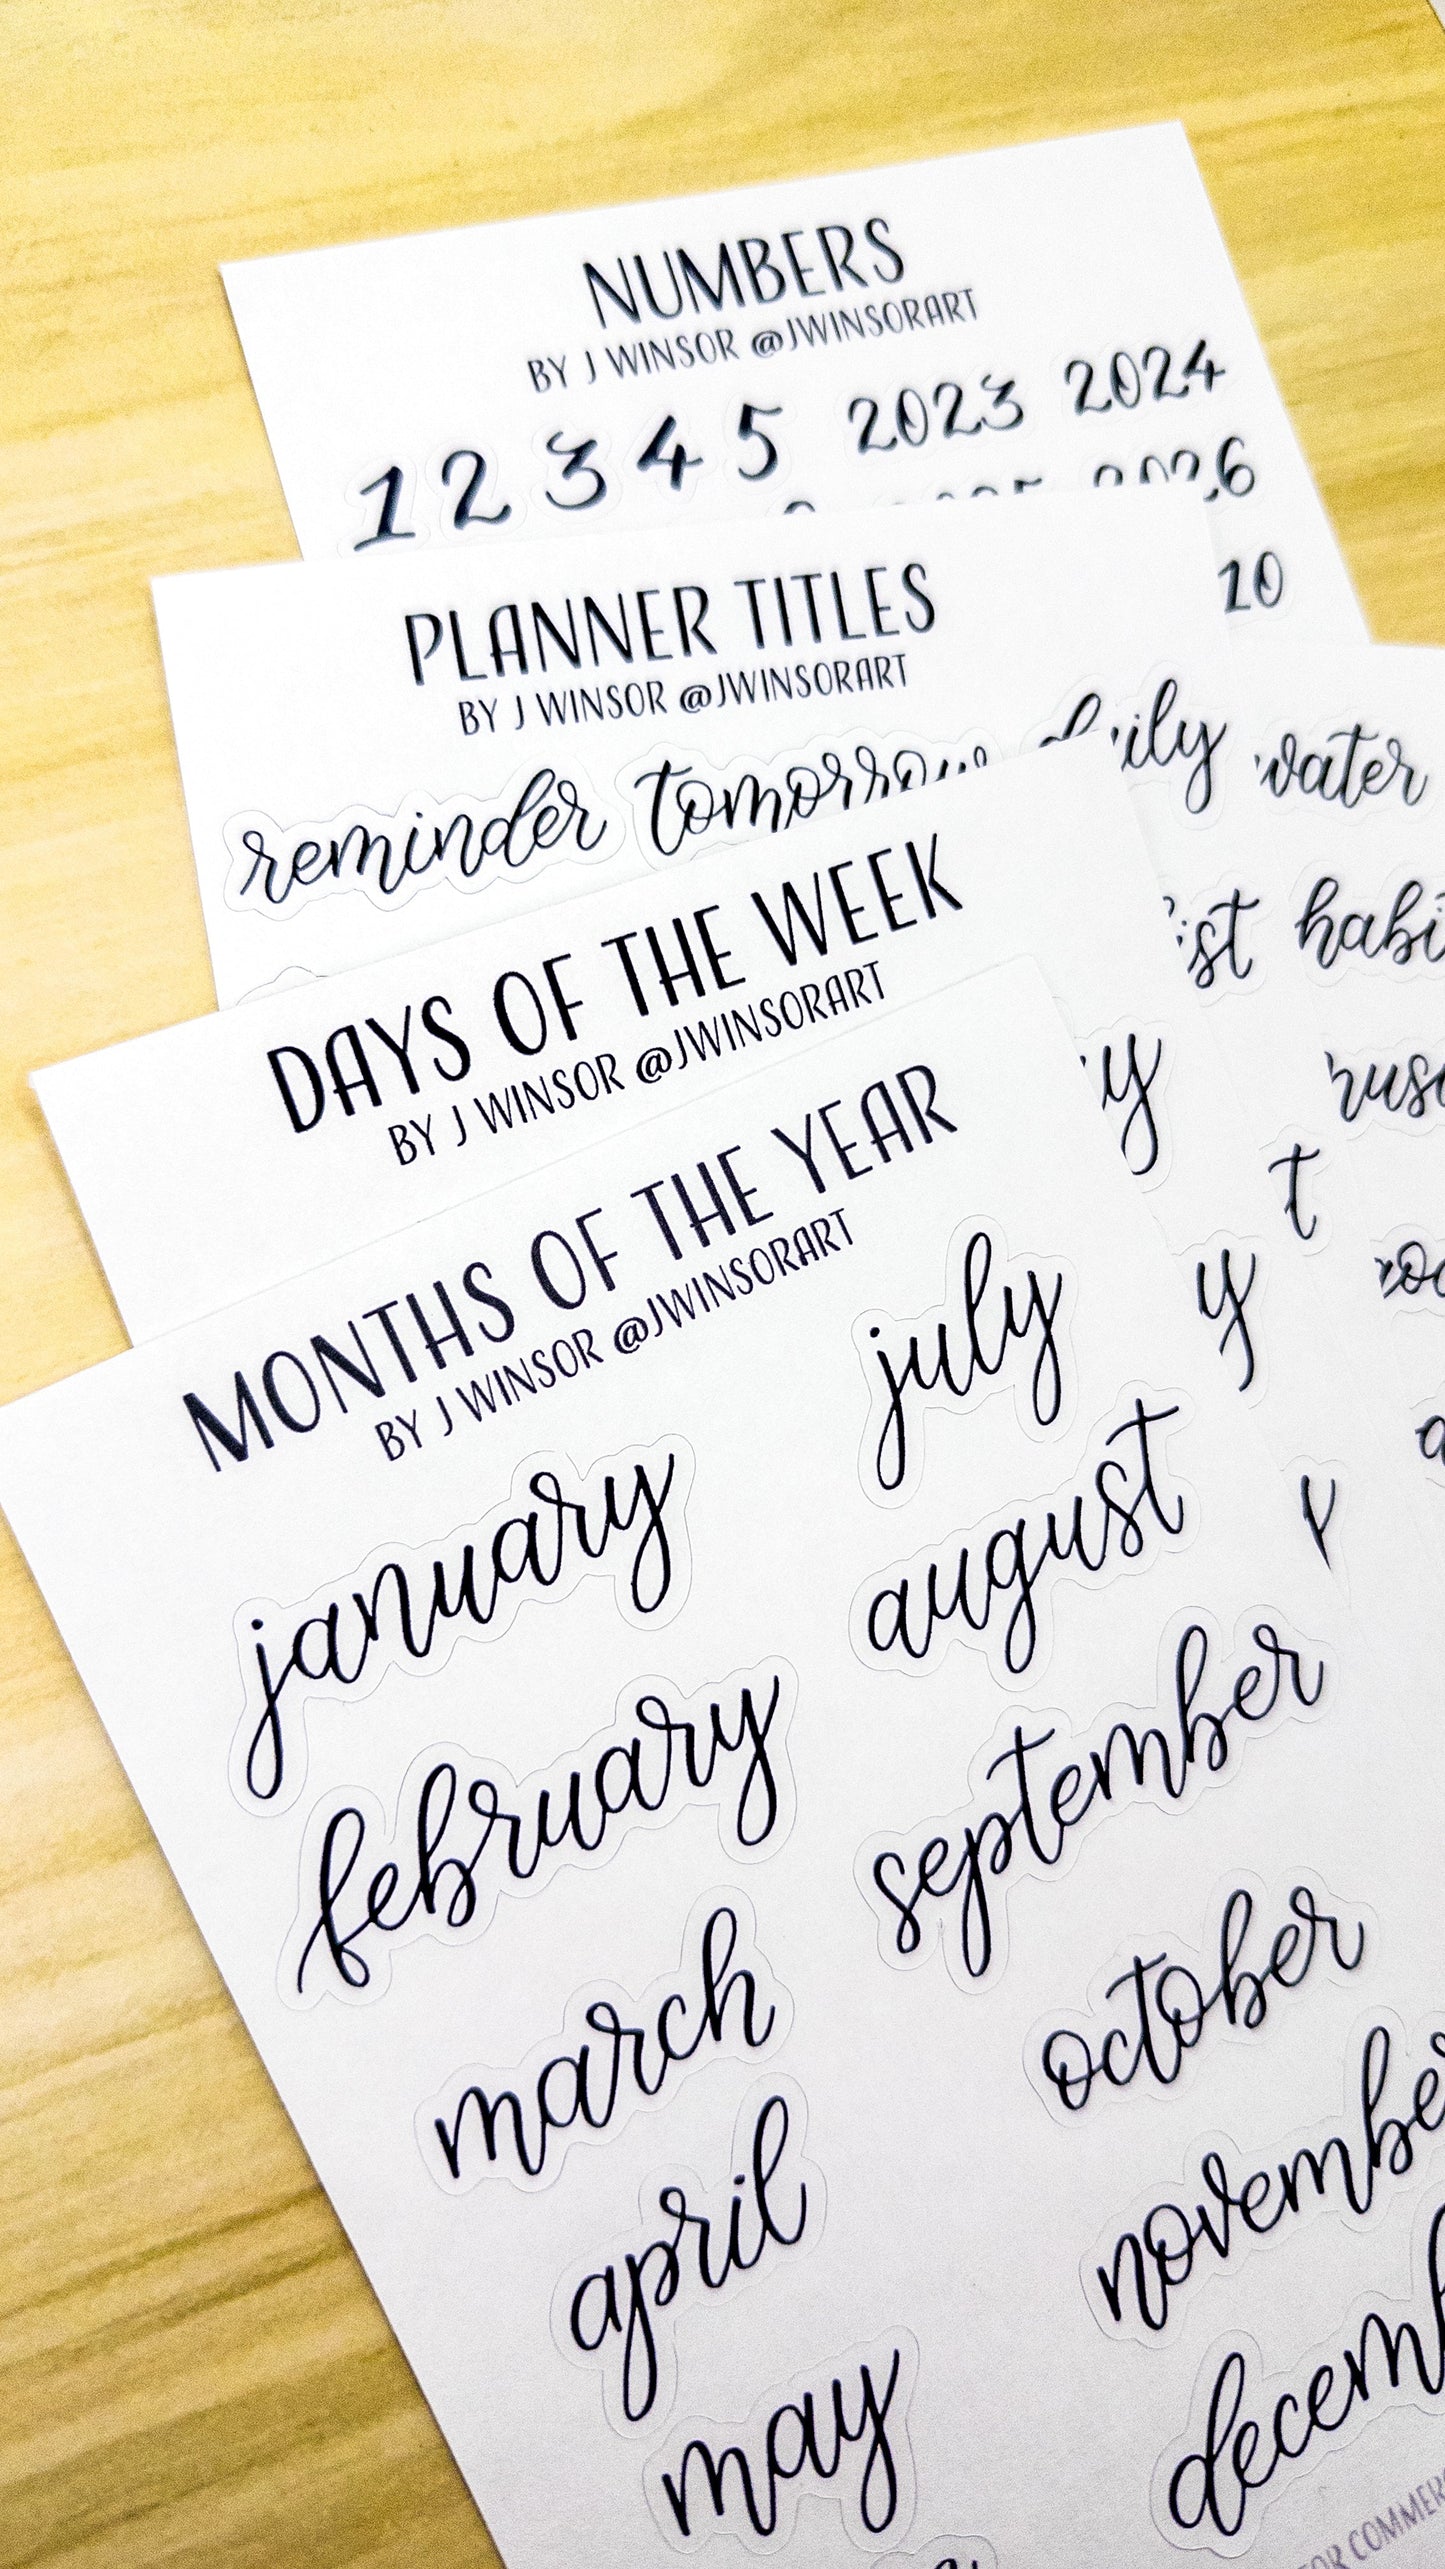 NUMBERS
BY J WINSOR @JWINSORART
1 2 3 4 5 2023 2024
10
PLANNER TITLES
BY J WINSOR @JWINSORART
reminder tomorrow daily water
DAYS OF THE WEEK
BY J WINSOR @JWINSORART
MONTHS OF THE YEAR
BY J WINSOR @JWINSORART
january july
february august
march september
april october
may